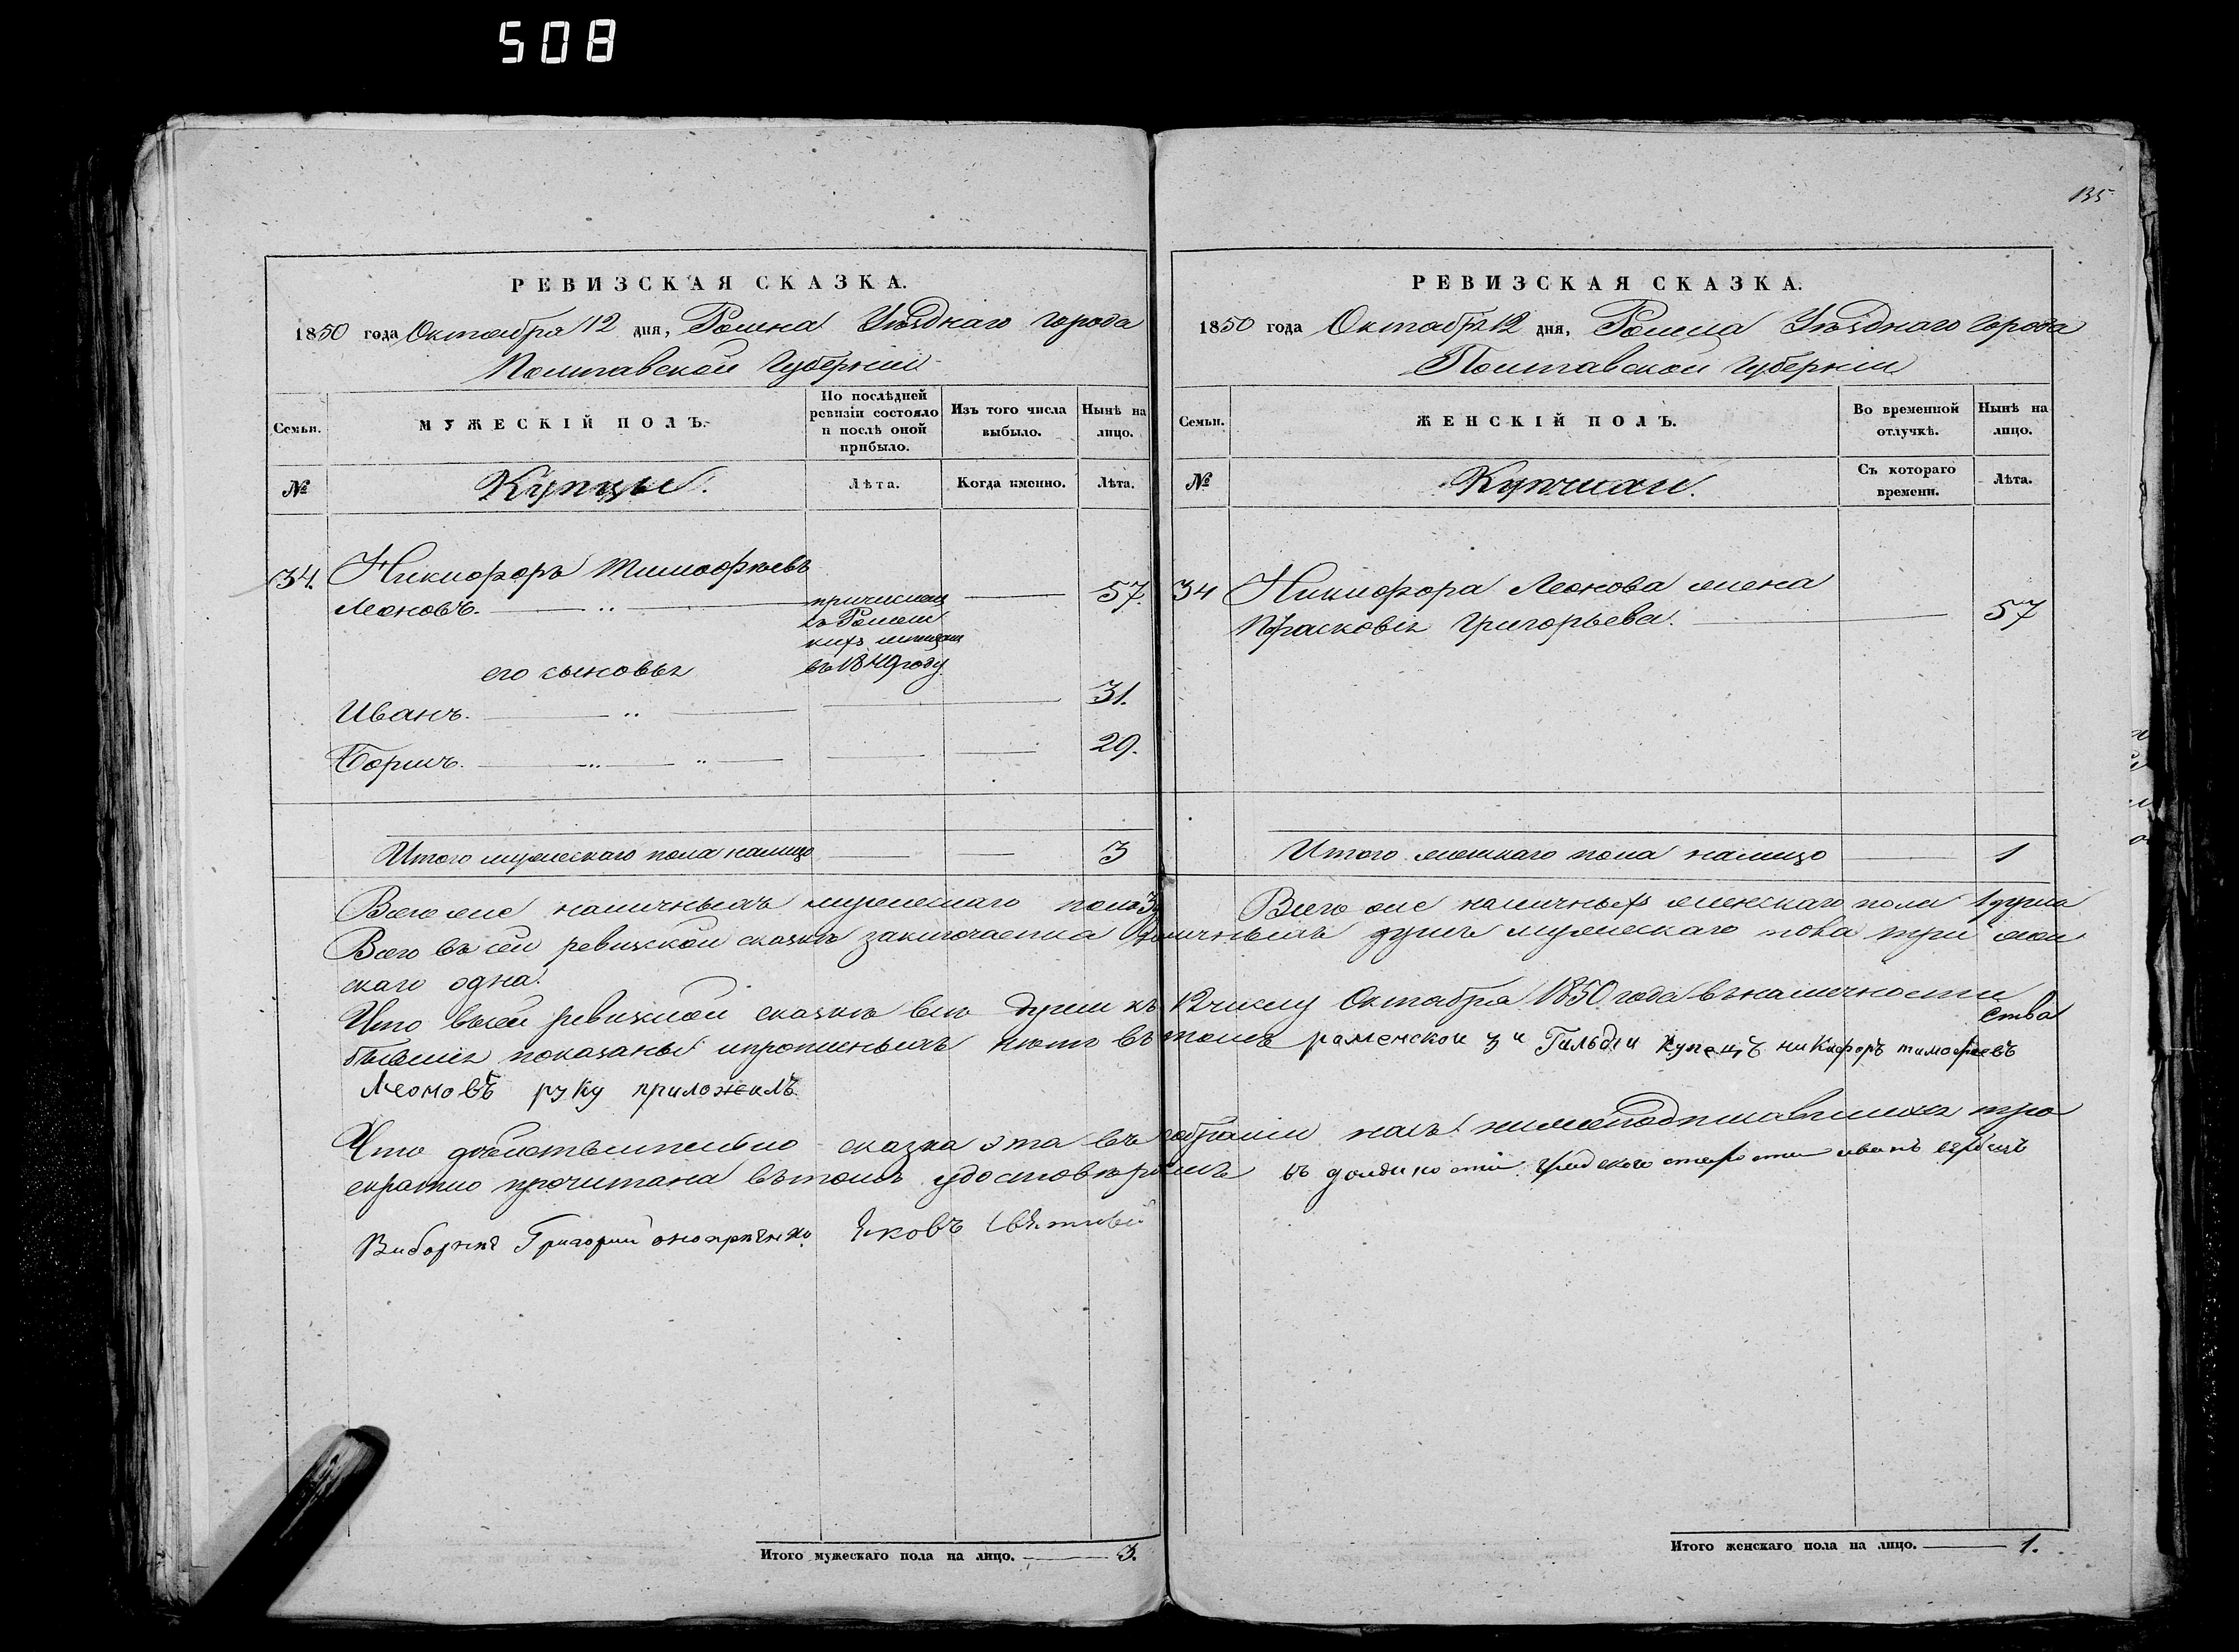 508
135
РЕВИЗСКАЯ СКАЗКА.
1850 года Октября 12 дня, Ромна Уѣзднаго города
Полтавской Губерніи
Семьи.
МУЖЕСКІЙ ПОЛЪ.
По послѣдней ревизіи состояло и послѣ оной прибыло.
Изъ того числа выбыло.
Нынѣ на лицо.
№
Купцы.
Лѣта.
Когда именно.
Лѣта.
34. Никифоръ Тимофѣевъ
Леоновъ. причислен 57.
въ Ромен
въ 1849 году.
его сыновья
Иванъ. 31.
Борисъ. 29.
Итого мужескаго пола налицо 3
РЕВИЗСКАЯ СКАЗКА.
1850 года Октября 12 дня, Ромна Уѣзднаго города
Полтавской Губерніи
Семьи.
ЖЕНСКІЙ ПОЛЪ.
Во временной отлучкѣ.
Нынѣ на лицо.
№
Купчихи.
Съ котораго времени.
Лѣта.
34 Никифора Леонова жена
Прасковья Григорьева. 57
Итого женскаго пола налицо 1
Всего же наличныхъ мужескаго пола 3 Всего же наличныхъ женскаго пола 1 душа
Всего въ сей ревизской сказкѣ заключается наличныхъ душъ мужескаго пола три жен
скаго одна.
Что въ сей ревизской сказкѣ всѣ души къ 12 числу Октября 1850 года въ наличности
бывшія показаны и прописныхъ нѣтъ въ томъ роменской 3й Гильдіи купецъ никифоръ тимофеевъ
Леоновъ руку приложилъ
Что дѣйствительно сказка эта въ собраніи насъ нижеподписавшихся тро
екратно прочитана въ томъ удостовѣряемъ въ должности градского старосты иванъ
Виборній Григорий Яковъ
Итого мужескаго пола на лицо. 3.
Итого женскаго пола на лицо. 1.